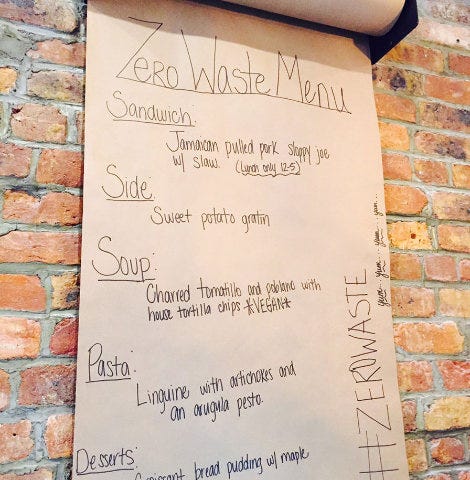 Zero Waste Menu
Sandwich:
Jamaican pulled pork sloppy joe
w/ slaw. (Lunch only 12-5)
Side:
Sweet potato gratin
Soup:
Charred tomatillo and poblano with
house tortilla chips *VEGAN*
Pasta:
Linguine with artichokes and
an arugula pesto.
Desserts:
Croissant bread pudding w/ maple
#ZEROWASTE
yum... yum... yum... yum...